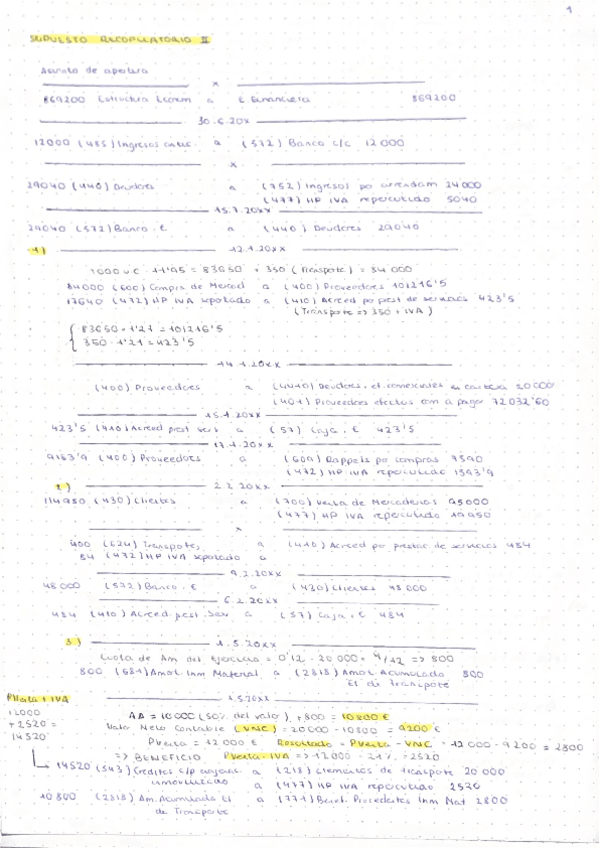 1
SUPUESTO RECOPILATORIO II
Asiento de apertura
x
869200 Estructura Econom a E. Financiera 869200
30.6.20xx
12000 (485) Ingresos antic. a (572) Banco c/c 12000
x
29040 (440) Deudores a (752) Ingresos por arrendam 24000
(477) HP IVA repercutido 5040
15.7.20xx
29040 (572) Banco.€ a (440) Deudores 29040
1)
12.1.20xx
7000 u 11'95 = 83650 + 350 (Transporte) = 84000
84000 (600) Compra de Mercad a (400) Proveedores 101216'5
17640 (472) HP IVA soportado a (410) Acreed por prest de servicios 423'5
(Transporte => 350 + IVA)
83650 · 1'21 = 101216'5
350 · 1'21 = 423'5
14.1.20xx
(400) Proveedores a (4410) Deudores, ef. comerciales en cartera 20000
(401) Proveedores efectos com a pagar 72032'60
15.1.20xx
423'5 (410) Acreed prest serv a (57) Caja.€ 423'5
17.1.20xx
9183'9 (400) Proveedores a (609) Rappels por compras 7590
(472) HP IVA repercutido 1593'9
2)
2.2.20xx
114950 (430) Clientes a (700) Venta de Mercaderias 95000
(477) HP IVA repercutido 19950
x
400 (624) Transportes a (410) Acreed por prestac de servicios 484
84 (472) HP IVA soportado a
4.2.20xx
48000 (572) Banco.€ a (430) Clientes 48000
6.2.20xx
484 (410) Acreed.prest.Serv a (57) Caja.€ 484
3)
1.5.20xx
Cuota de Am del Ejercicio = 0'12 · 20000 · 4/12 => 800
800 (681) Amot. Inm Material a (2818) Amot Acumulado 800
El de Transporte
1.5.20xx
PVenta + IVA
12000
+ 2520 =
14520
AA = 10000 (50% del valor) + 800 = 10800 €
Valor Neto Contable (VNC) = 20000 - 10800 = 9200 €
PVenta = 12000 € Resultado = PVenta - VNC = 12000 - 9200 = 2800
=> BENEFICIO PVenta · IVA => 12000 · 21% = 2520
14520 (543) Creditos c/p enajen. a (218) Elementos de transporte 20000
inmovilizado a (477) HP IVA repercutido 2520
10800 (2818) Am. Acumulada El a (771) Benef. Procedentes Inm Mat 2800
de Transporte